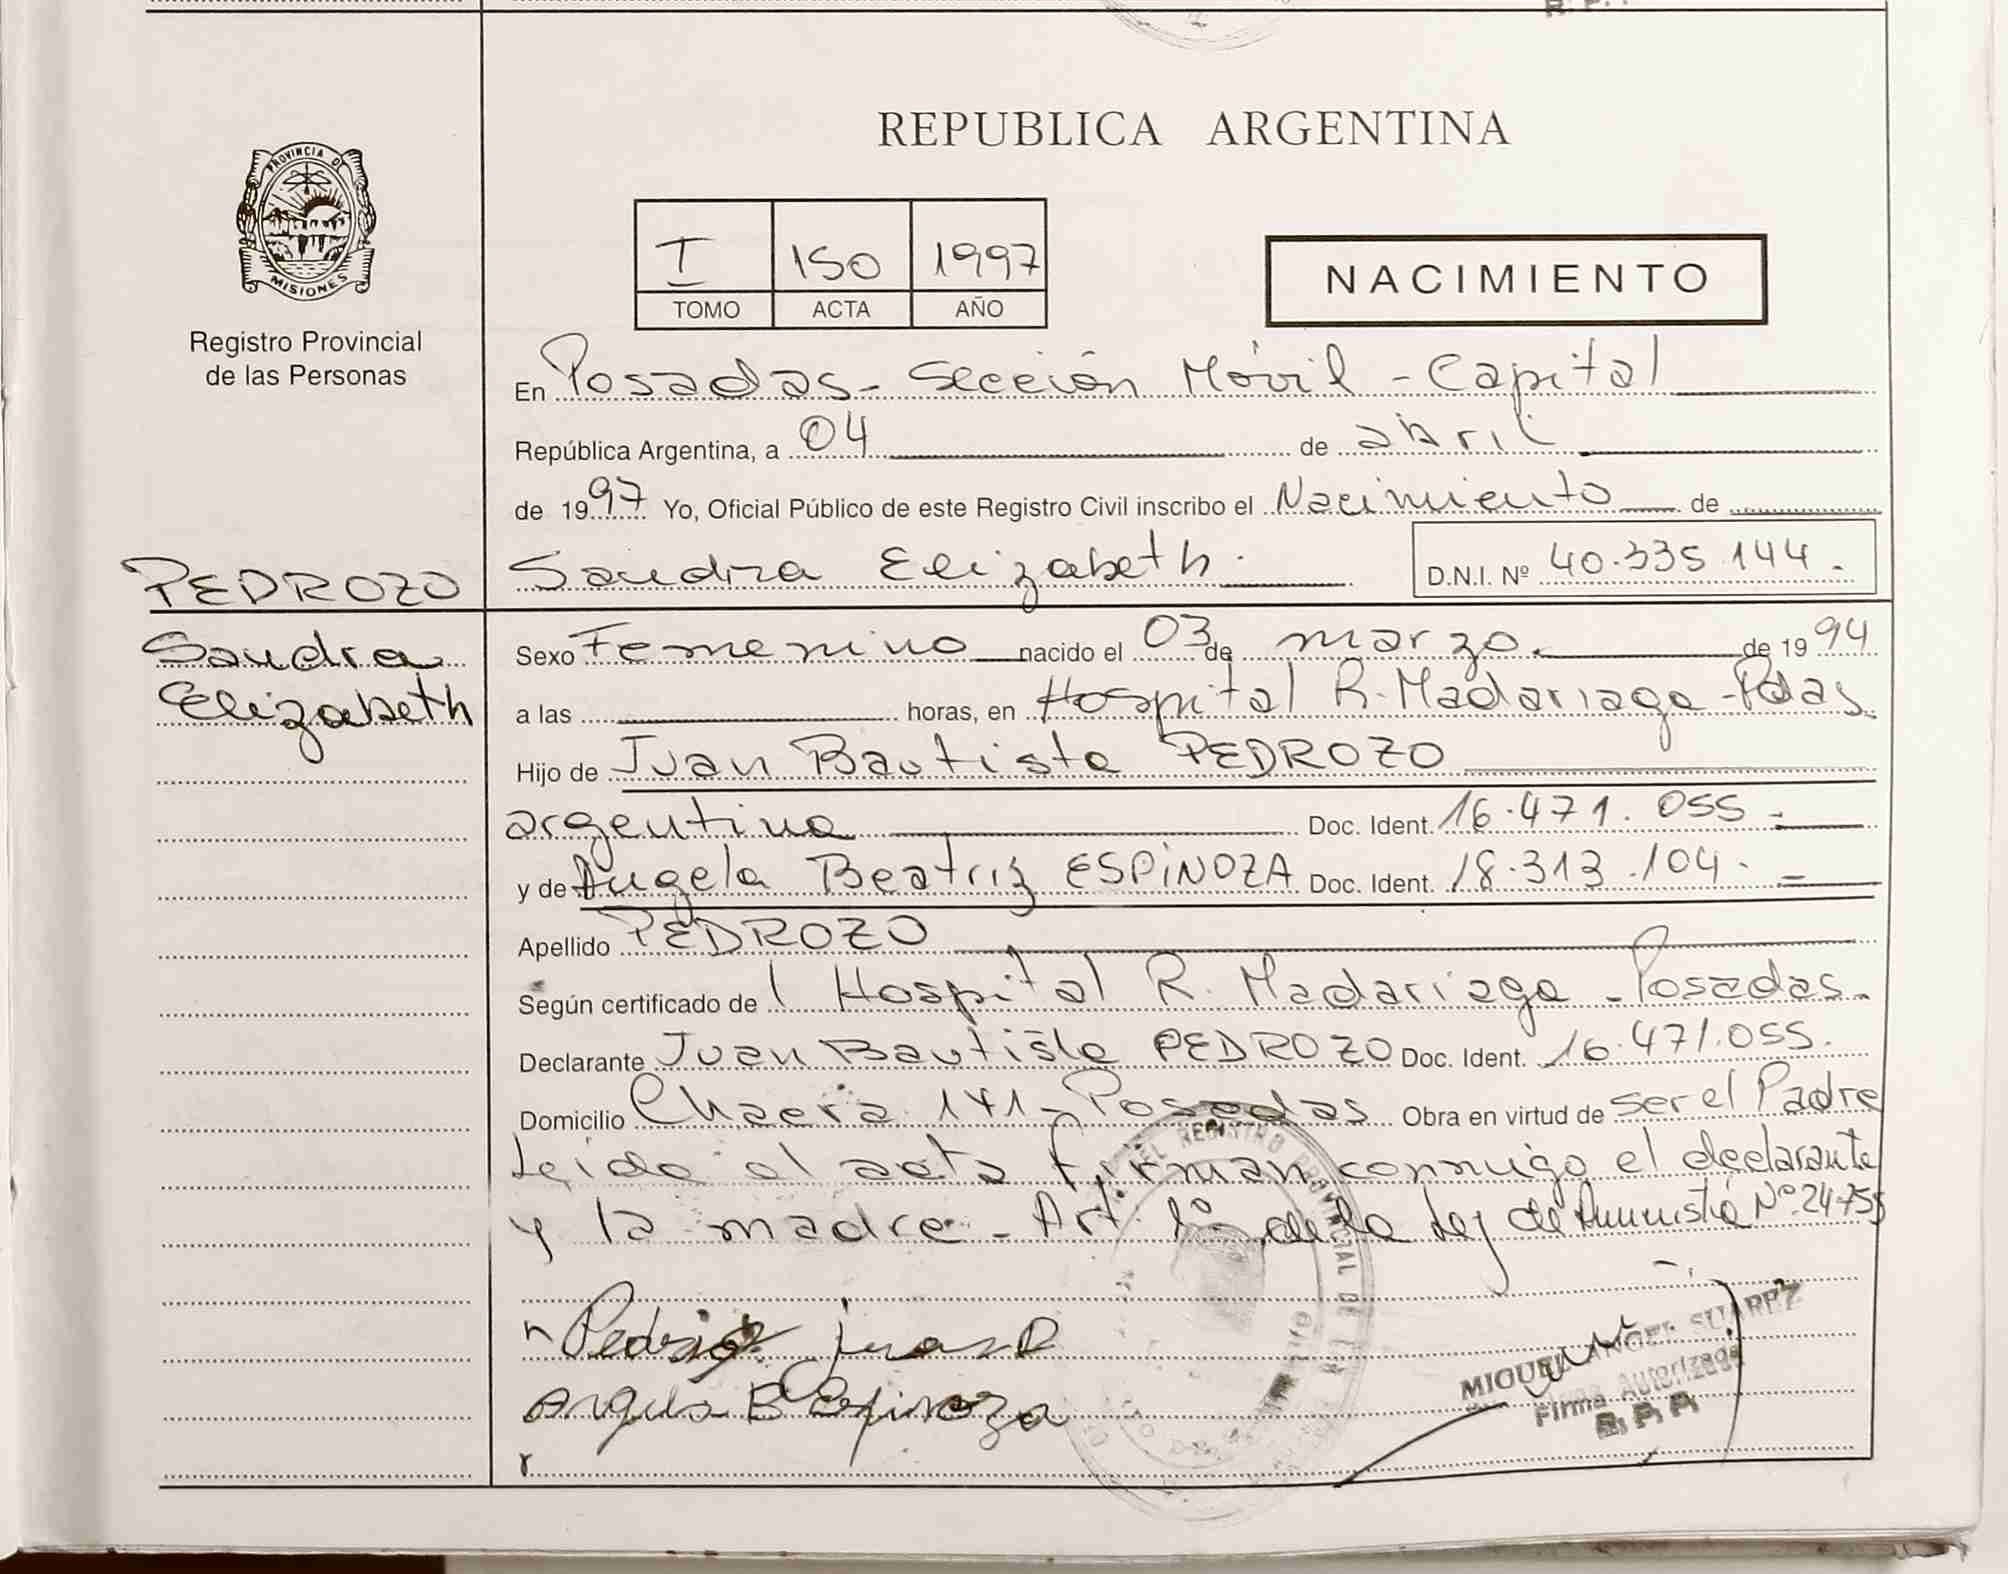 REPUBLICA ARGENTINA
PROVINCIA DE
MISIONES
Registro Provincial
de las Personas
I 150 1997
TOMO ACTA AÑO
NACIMIENTO
En Posadas - Sección Móvil - Capital
República Argentina, a 04 de abril
de 1997 Yo, Oficial Público de este Registro Civil inscribo el Nacimiento de
Sandra Elizabeth. D.N.I. Nº 40.335.144.
PEDROZO
Sandra
Elizabeth
Sexo Femenino nacido el 03 de marzo. de 1994
a las horas, en Hospital R. Madariaga - Pdas.
Hijo de Juan Bautista PEDROZO
argentina Doc. Ident. 16.471.055.-
y de Angela Beatriz ESPINOZA Doc. Ident. 18.313.104.-
Apellido PEDROZO
Según certificado de l Hospital R. Madariaga - Posadas.
Declarante Juan Bautista PEDROZO Doc. Ident. 16.471.055.
Domicilio 141 - Posadas Obra en virtud de ser el Padre
Leida el acta firman conmigo el declarante
y la madre. Art. 1º de la Ley de Amnistía Nº 24755
Juan B
Angela B Espinoza
MIGUEL ANGEL SUAREZ
Firma Autorizada
R. P. P.
DEL REGISTRO PROVINCIAL DE